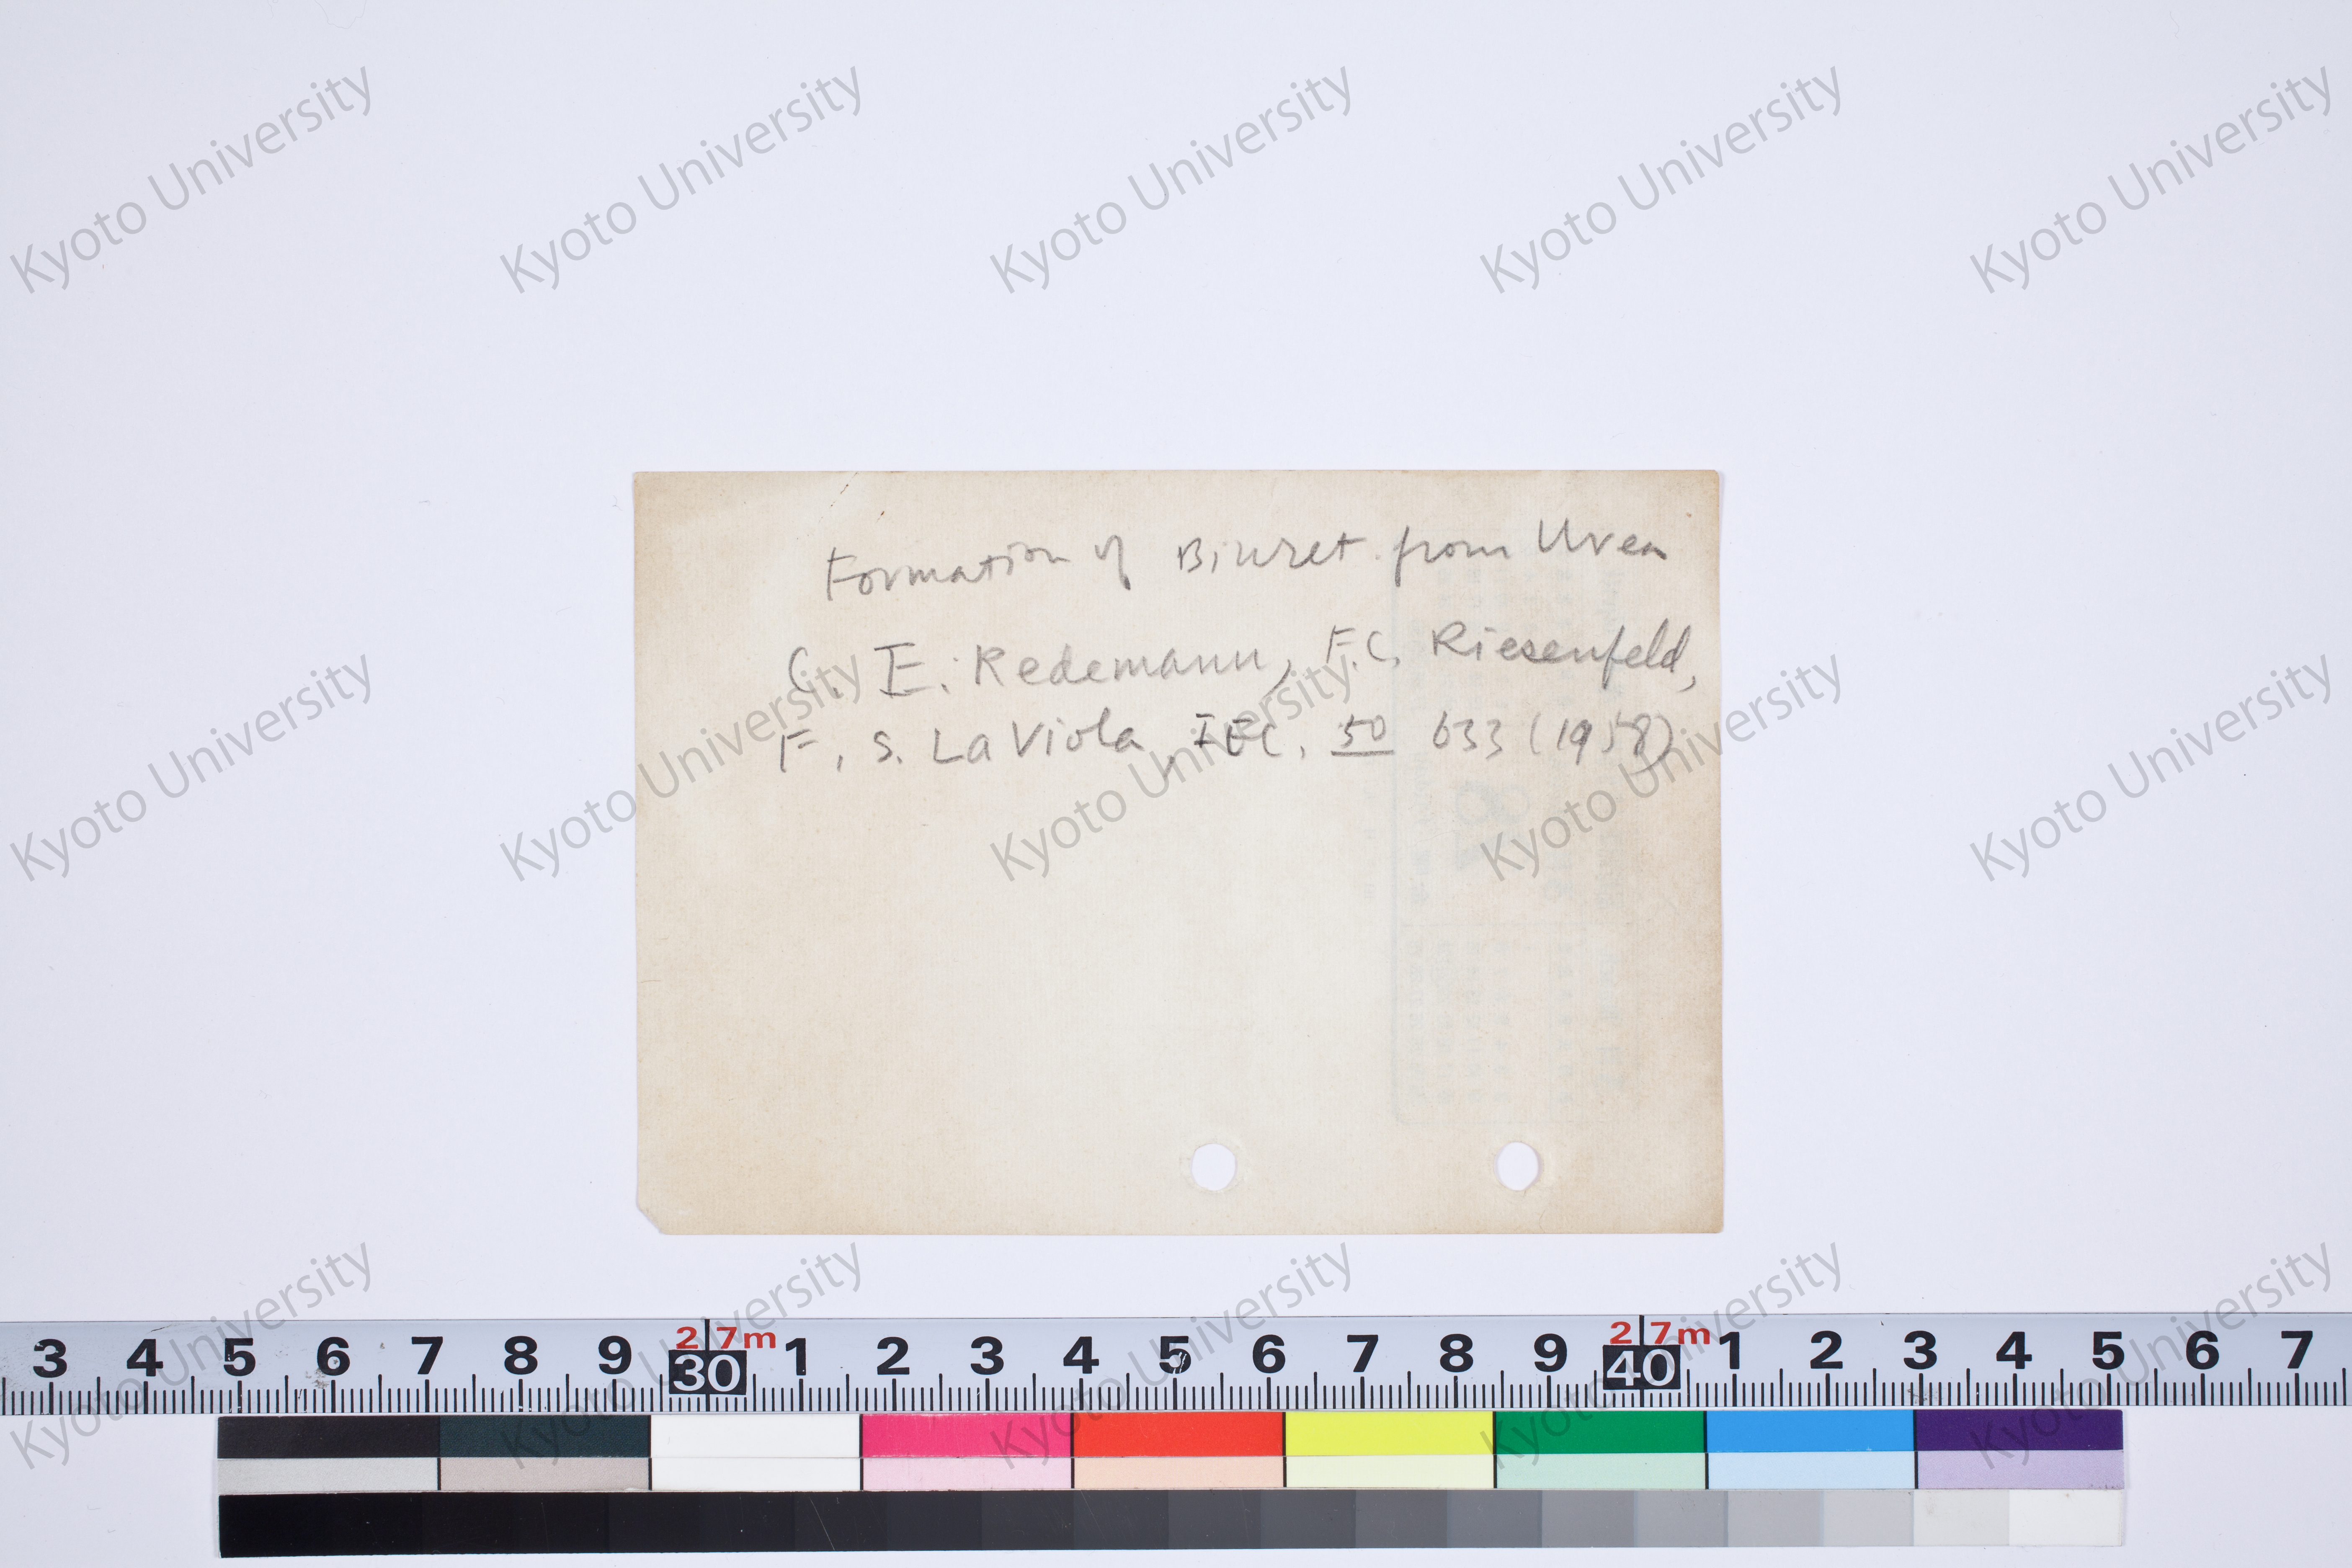 Formation of Biuret from Urea
C. E. Redemann, F.C. Riesenfeld,
F. S. La Viola, IEC. 50 633 (1958)
Kyoto University Kyoto University Kyoto University Kyoto University Kyoto University
Kyoto University Kyoto University Kyoto University Kyoto University Kyoto University
Kyoto University Kyoto University Kyoto University Kyoto University Kyoto University
2 7m 2 7m
3 4 5 6 7 8 9 30 1 2 3 4 5 6 7 8 9 40 1 2 3 4 5 6 7